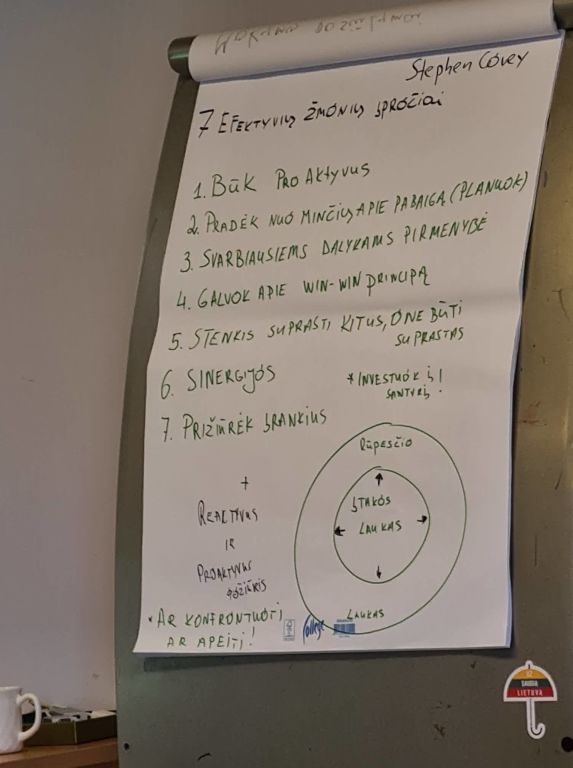 Stephen Covey
7 EFEKTYVIŲ ŽMONIŲ ĮPROČIAI
1. BŪK PROAKTYVUS
2. PRADĖK NUO MINČIŲ APIE PABAIGĄ (PLANUOK)
3. SVARBIAUSIEMS DALYKAMS PIRMENYBĖ
4. GALVOK APIE WIN-WIN PRINCIPĄ
5. STENKIS SUPRASTI KITUS, O NE BŪTI
SUPRASTAS
6. SINERGIJOS
* INVESTUOK Į
SANTYKĮ!
7. PRIŽIŪRĖK ĮRANKIUS
RŪPESČIO
ĮTAKOS
LAUKAS
LAUKAS
+
REAKTYVUS
IR
PROAKTYVUS
POŽIŪRIS
* AR KONFRONTUOTI
AR APEITI!
college
SAUGI
LIETUVA